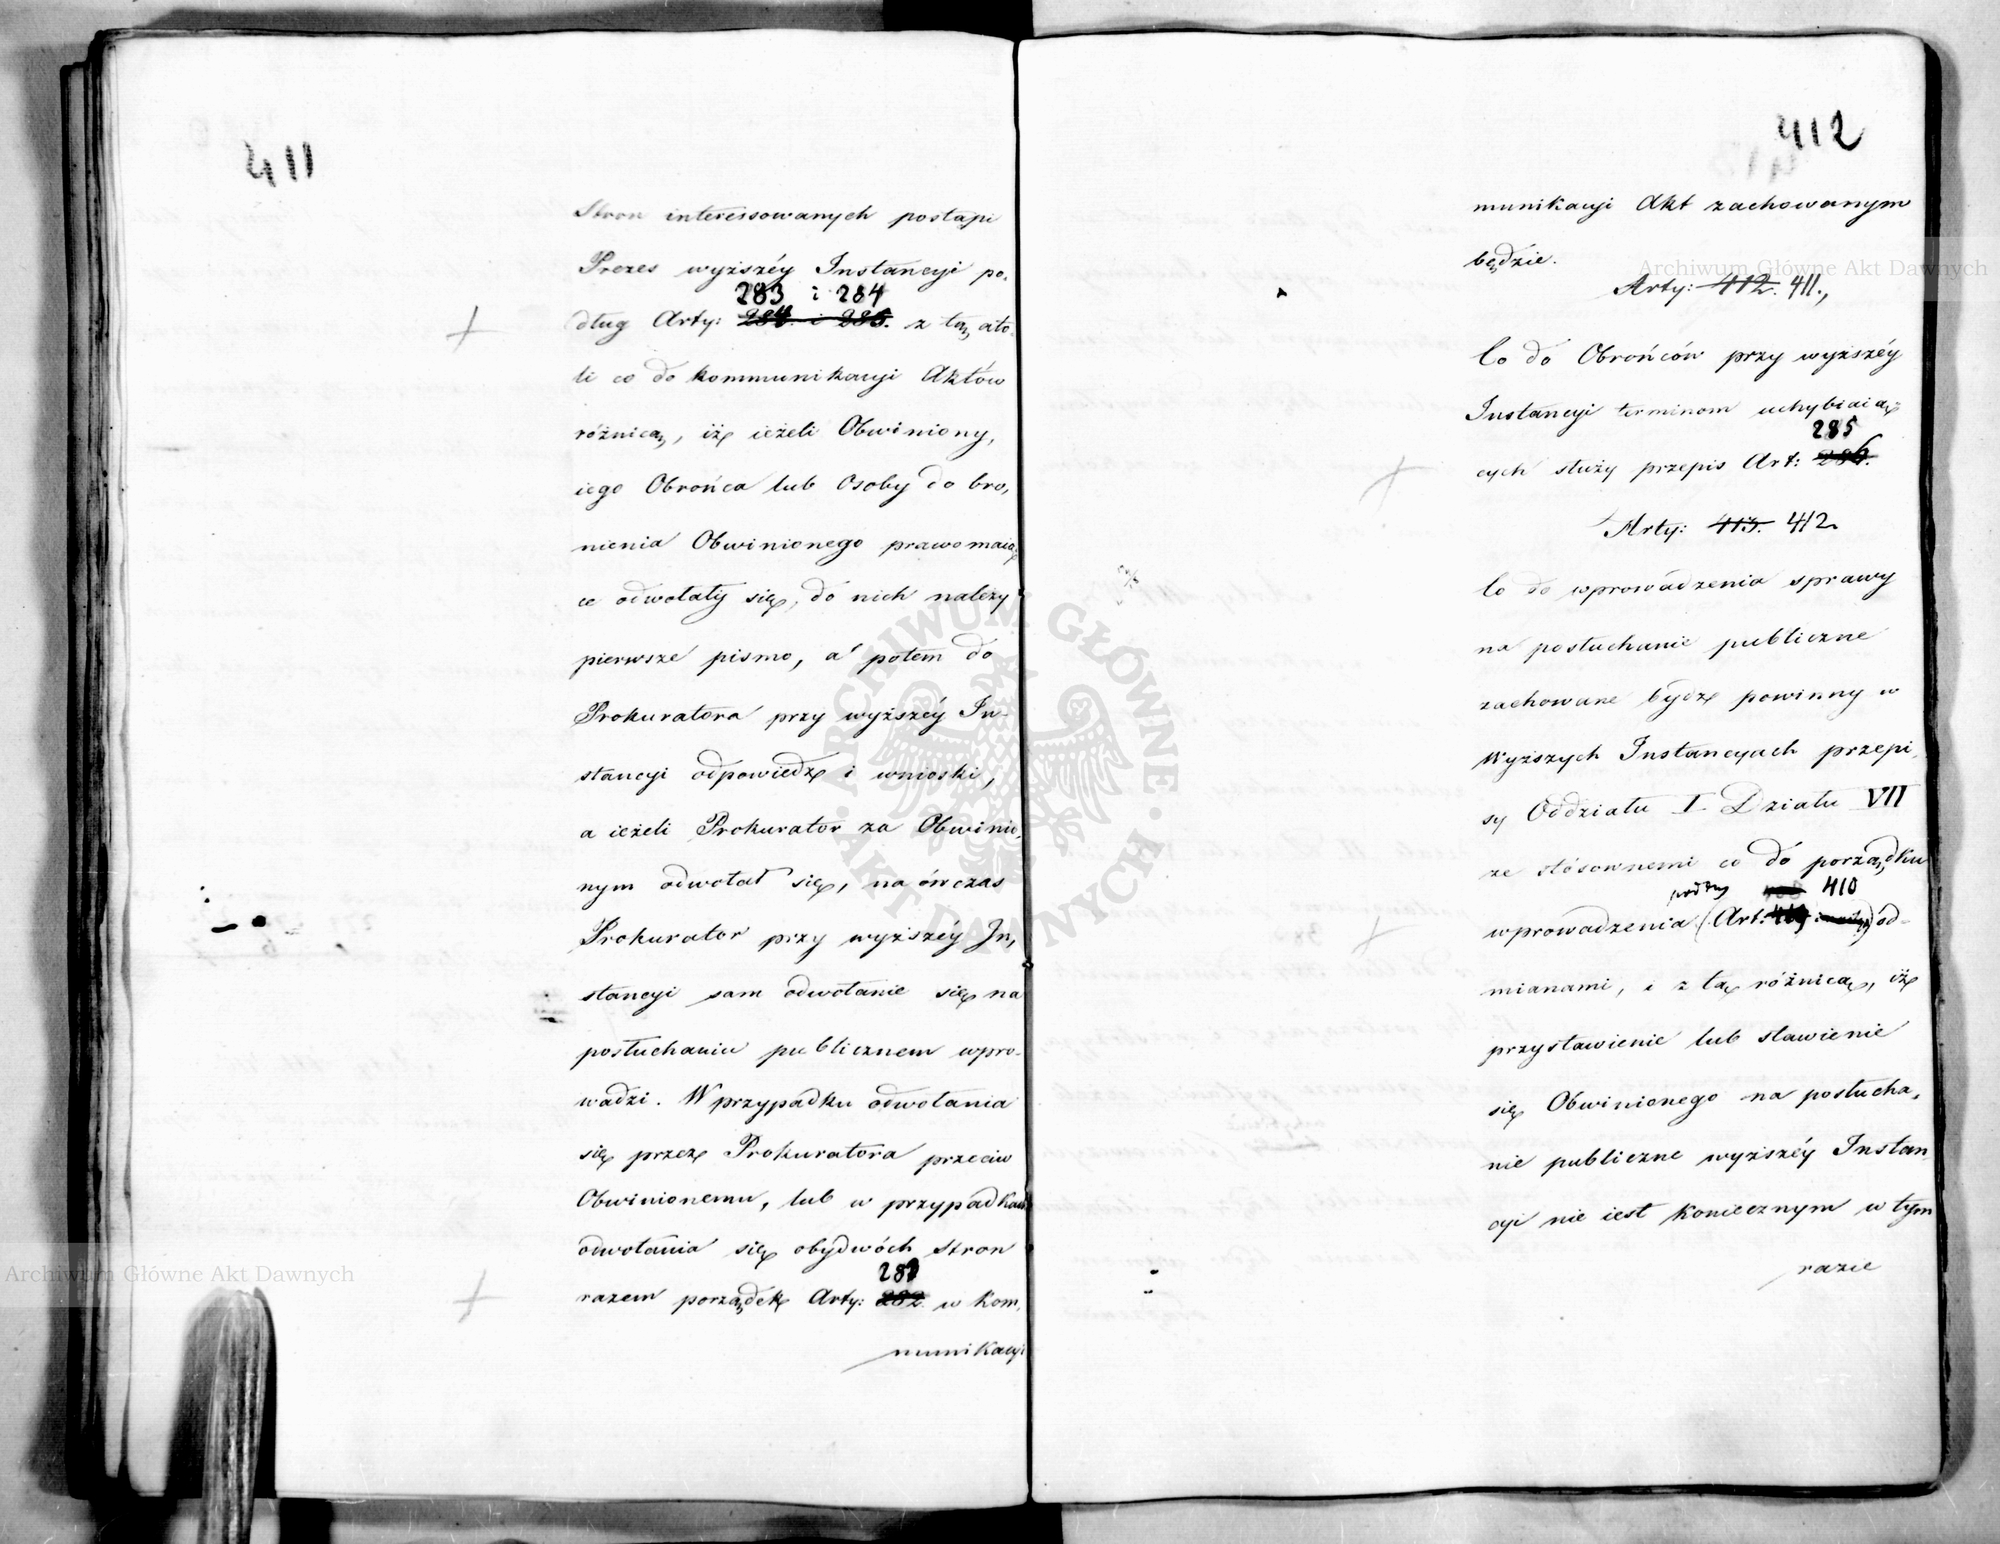 411
Stron interessowanych postąpi
Prezes wyższéy Instancyi po,
283 i 284
dług Arty: 284. i 285. z tą ato-
li co do kommunikacyi Aktów
różnicą, iż ieżeli Obwiniony,
iego Obrońca lub Osoby do bro,
nienia Obwinionego prawo maią,
ce odwołały się, do nich należy
pierwsze pismo, a potem do
Prokuratora przy wyższéy In-
stancyi odpowiedź i wnioski,
a ieżeli Prokurator za Obwinio,
nym odwołał się, na ówczas
Prokurator przy wyższéy In,
stancyi sam odwołanie się na
posłuchaniu publicznem wpro-
wadzi. W przypadku odwołania
się przez Prokuratora przeciw
Obwinionemu, lub w przypadkach
odwołania się obydwóch stron
razem porządek Arty: 282. w kom,
munikacyi
412
munikacyi Akt zachowanym
będzie.
Arty: 412. 411.,
Co do Obrońców przy wyższéy
Instancyi terminom uchybiaią-
285
cych służy przepis Art: 286.
Arty: 413. 412.
Co do wprowadzenia sprawy
na posłuchanie publiczne
zachowane bydź powinny w
Wyższych Instancyach przepi,
sy Oddziału I Działu VII
ze stósownemi co do porządku
podług 410
wprowadzenia (Art: od-
mianami, i z tą różnicą, iż
przystawienie lub stawienie
się Obwinionego na posłucha,
nie publiczne wyższéy Instan,
cyi nie iest koniecznym w tym
razie
Archiwum Główne Akt Dawnych
Archiwum Główne Akt Dawnych
ARCHIWUM GŁÓWNE · AKT DAWNYCH ·